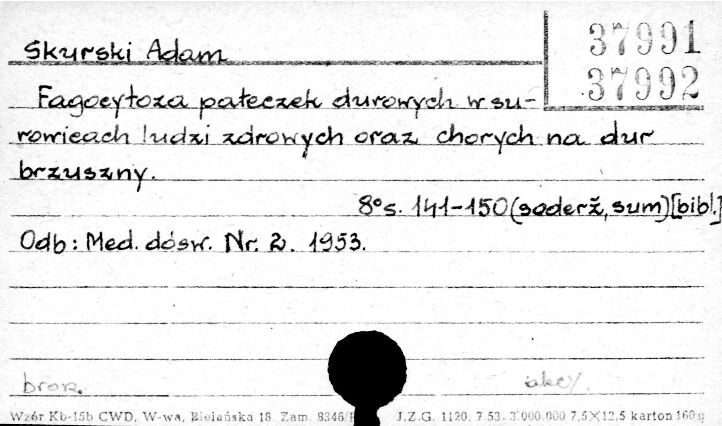 37991
Skurski Adam
37992
Fagocytoza pałeczek durowych w su-
rowicach ludzi zdrowych oraz chorych na dur
brzuszny.
8°s. 141-150 (soderž, sum) [bibl.]
Odb: Med. dośw. Nr. 2. 1953.
brosz.
Wzór Kb-15b CWD, W-wa, Bielańska 18. Zam. 8346/ J.Z.G. 1120. 7.53. 3.000.000 7,5×12,5 karton 160g